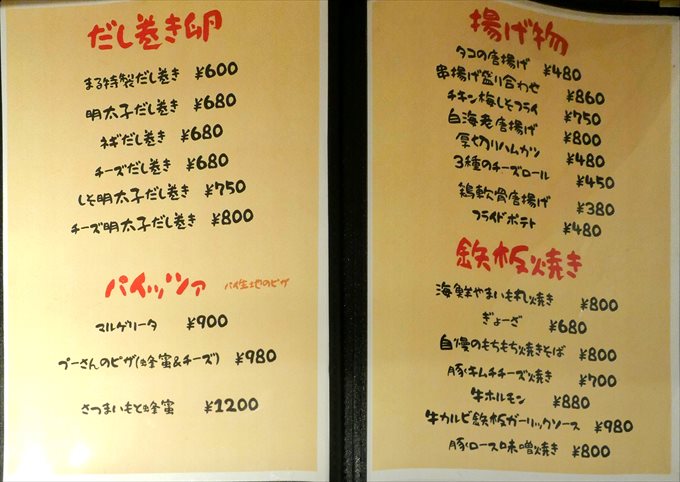 だし巻き卵
まる特製だし巻き ¥600
明太子だし巻き ¥680
ネギだし巻き ¥680
チーズだし巻き ¥680
しそ明太子だし巻き ¥750
チーズ明太子だし巻き ¥800
パイッツァ パイ生地のピザ
マルゲリータ ¥900
プーさんのピザ(蜂蜜&チーズ) ¥980
さつまいもと蜂蜜 ¥1200
揚げ物
タコの唐揚げ ¥480
串揚げ盛り合わせ ¥860
チキン梅しそフライ ¥750
白海老唐揚げ ¥800
厚切りハムカツ ¥480
3種のチーズロール ¥450
鶏軟骨唐揚げ ¥380
フライドポテト ¥480
鉄板焼き
海鮮やまいも丸焼き ¥800
ぎょーざ ¥680
自慢のもちもち焼きそば ¥800
豚キムチチーズ焼き ¥700
牛ホルモン ¥880
牛カルビ鉄板ガーリックソース ¥980
豚ロース味噌焼き ¥800